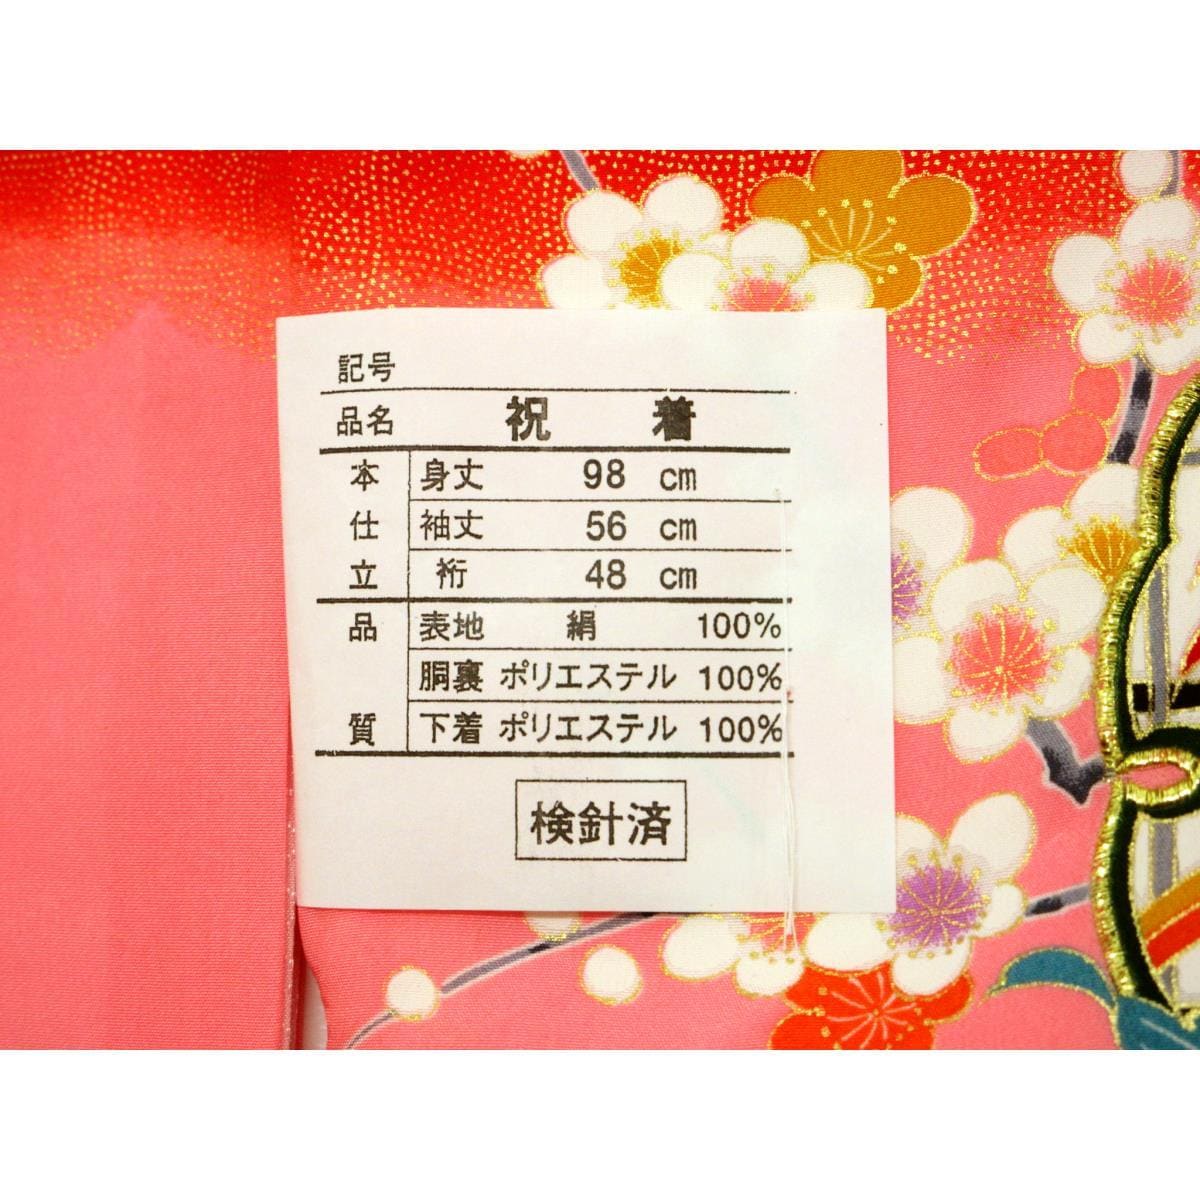 記号
品名 祝着
本 身丈 98 cm
仕 袖丈 56 cm
立 裄 48 cm
品 表地 絹 100%
胴裏 ポリエステル 100%
質 下着 ポリエステル 100%
検針済